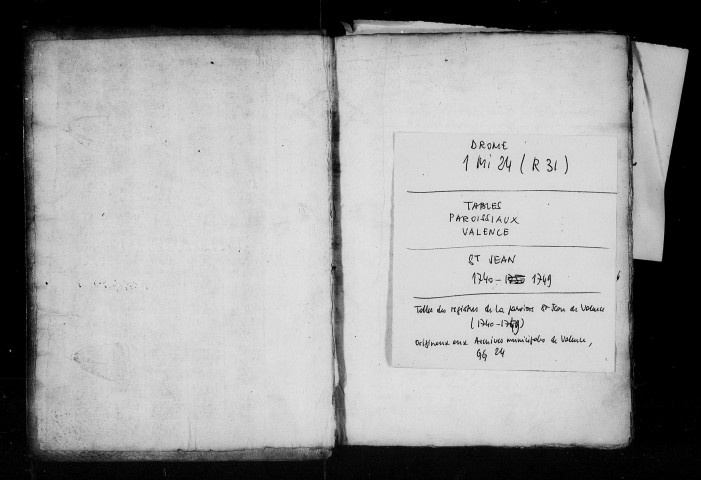 DROME
1 Mi 24 (R 31)
TABLES
PAROISSIAUX
VALENCE
ST JEAN
1740 - 1749
Tables des registres de la paroisse St Jean de Valence
(1740-1749)
originaux aux Archives municipales de Valence,
GG 24